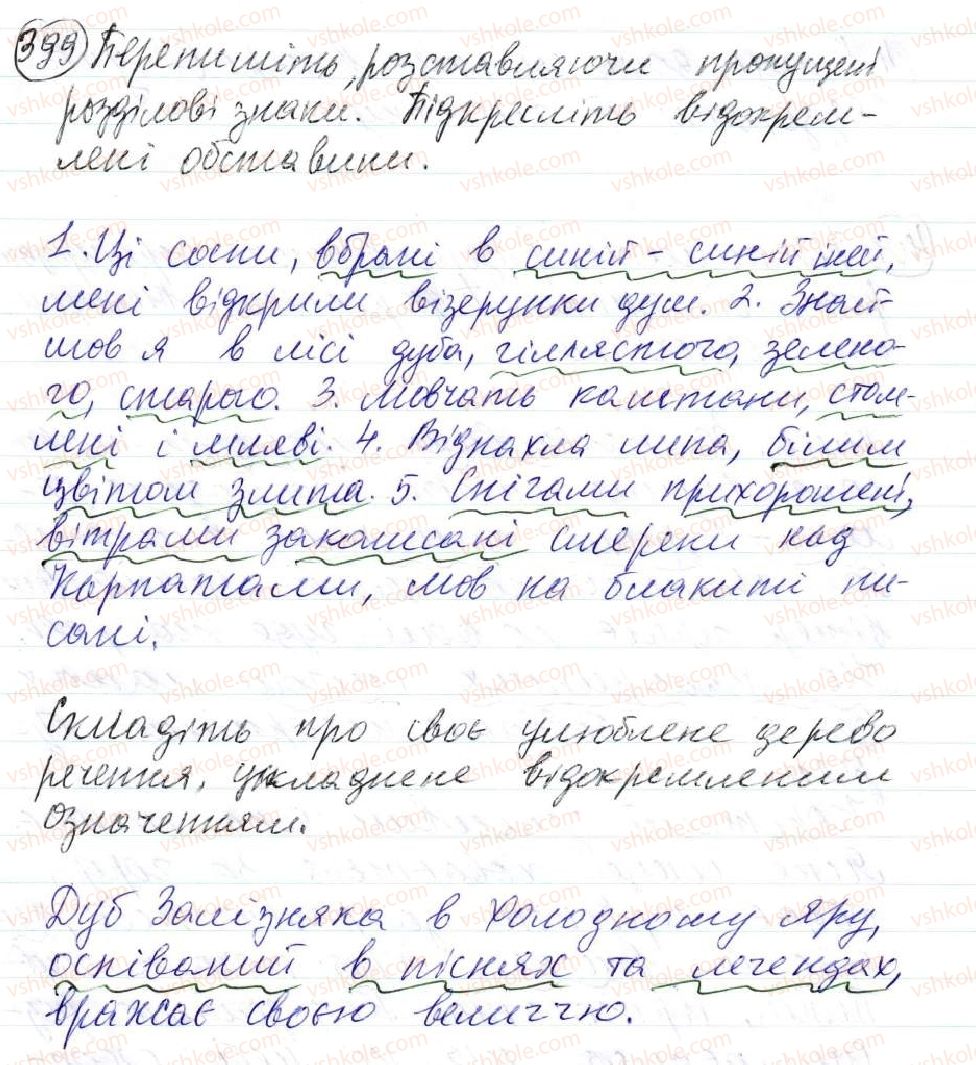 399 Перепишіть, розставляючи пропущені
розділові знаки. Підкресліть відокрем-
лені обставини.
1. Ці сосни, вбрані в синій-синій іней,
мені відкрили візерунки дум. 2. Знай-
шов я в лісі дуба, гіллястого, зелено-
го, старого. 3. Мовчать каштани, стом-
лені і мляві. 4. Відпахла липа, білим
цвітом злита. 5. Снігами прихорошені,
вітрами заколисані смереки над
Карпатами, мов на блакиті пи-
сані.
Складіть про своє улюблене дерево
речення, ускладнене відокремленим
означенням.
Дуб Залізняка в Холодному Яру,
оспіваний в піснях та легендах,
вражає своєю величчю.